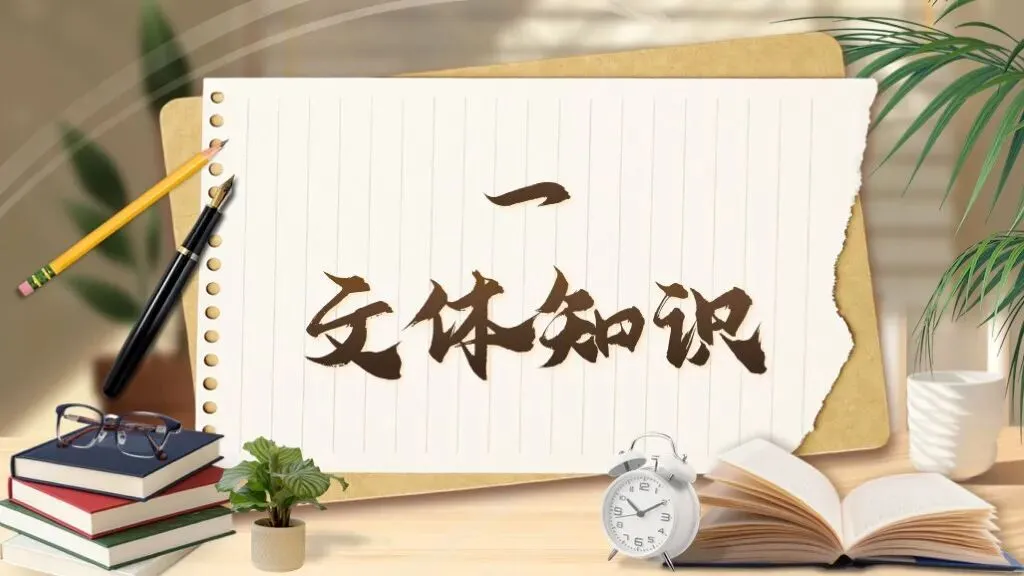 一
文体知识